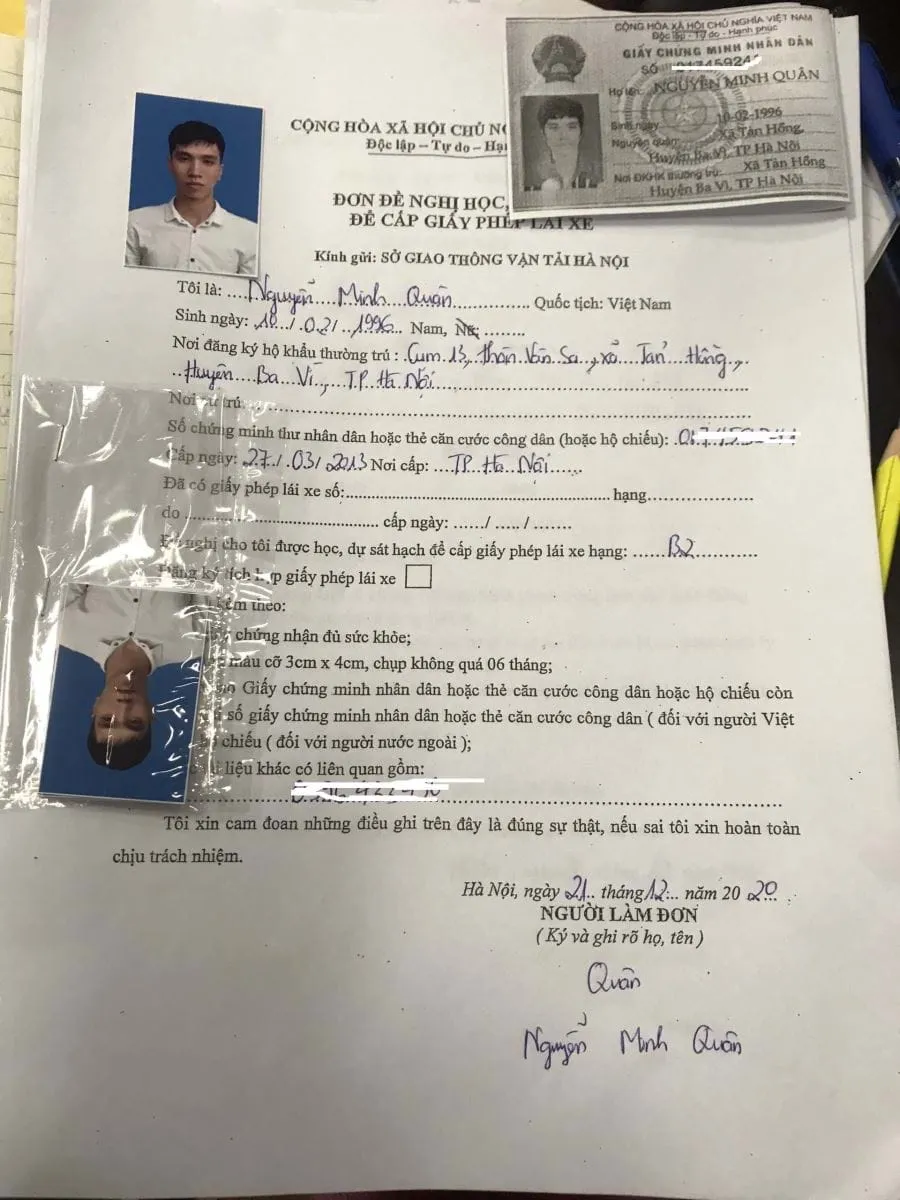 CỘNG HÒA XÃ HỘI CHỦ NGHĨA VIỆT NAM
Độc lập - Tự do - Hạnh phúc
GIẤY CHỨNG MINH NHÂN DÂN
SỐ
Họ tên: NGUYỄN MINH QUÂN
Sinh ngày 10-02-1996
Nguyên quán: Xã Tản Hồng,
Huyện Ba Vì, TP Hà Nội
Nơi ĐKHK thường trú: Xã Tản Hồng
Huyện Ba Vì, TP Hà Nội
CỘNG HÒA XÃ HỘI CHỦ
Độc lập – Tự do –
ĐƠN ĐỀ NGHỊ HỌC,
ĐỂ CẤP GIẤY PHÉP LÁI XE
Kính gửi: SỞ GIAO THÔNG VẬN TẢI HÀ NỘI
Tôi là: Nguyễn Minh Quân Quốc tịch: Việt Nam
Sinh ngày: 10/02/1996 Nam,
Nơi đăng ký hộ khẩu thường trú: Cụm 13, thôn Vân Sa, xã Tản Hồng,
Huyện Ba Vì, TP Hà Nội
Nơi cư trú
Số chứng minh thư nhân dân hoặc thẻ căn cước công dân (hoặc hộ chiếu):
Cấp ngày: 27/03/2013 Nơi cấp: TP Hà Nội
Đã có giấy phép lái xe số: hạng
do cấp ngày: / /
Đề nghị cho tôi được học, dự sát hạch để cấp giấy phép lái xe hạng: B2
Đăng ký tích hợp giấy phép lái xe
kèm theo:
chứng nhận đủ sức khỏe;
màu cỡ 3cm x 4cm, chụp không quá 06 tháng;
Giấy chứng minh nhân dân hoặc thẻ căn cước công dân hoặc hộ chiếu còn
số giấy chứng minh nhân dân hoặc thẻ căn cước công dân ( đối với người Việt
hộ chiếu ( đối với người nước ngoài );
liệu khác có liên quan gồm:
Tôi xin cam đoan những điều ghi trên đây là đúng sự thật, nếu sai tôi xin hoàn toàn
chịu trách nhiệm.
Hà Nội, ngày 21 tháng 12 năm 2020
NGƯỜI LÀM ĐƠN
( Ký và ghi rõ họ, tên )
Quân
Nguyễn Minh Quân